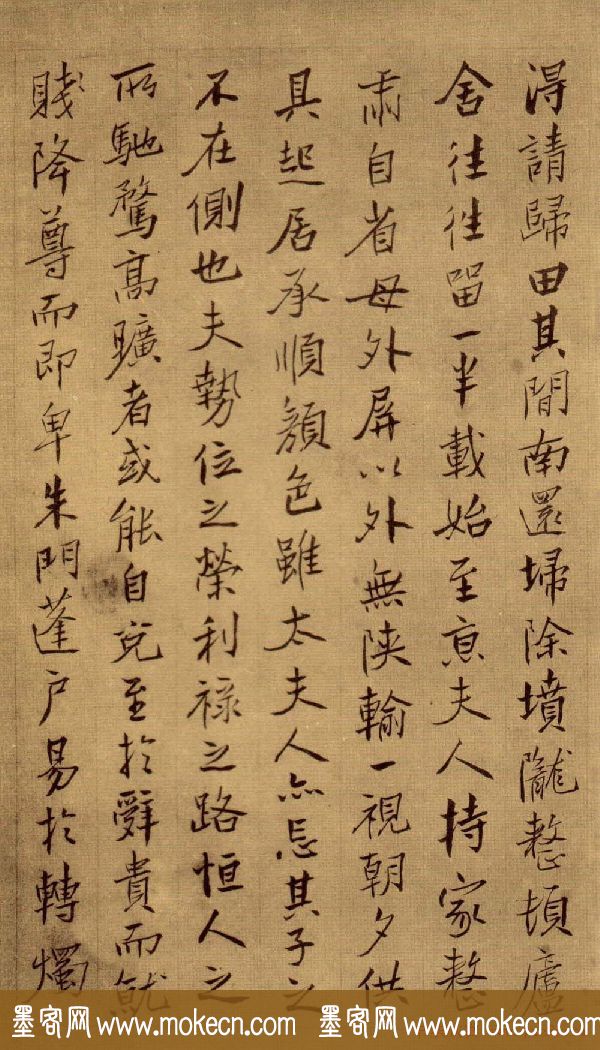 得請歸田其間南還埽除墳隴整頓廬
舍往往留一半載始至京夫人持家整
肅自省母外屏以外無陝輸一視朝夕供
具起居承順顏色雖太夫人亦忘其子之
不在側也夫勢位之榮利祿之路恒人之
所馳騖高曠者或能自免至於辭貴而就
賤降尊而即卑朱門蓬户易於轉燭
墨客网 www.mokecn.com 墨客网 www.mokecn.com